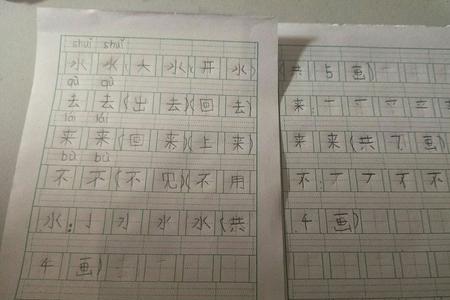 shuǐ shuǐ
水 水(大 水)(开 水)
qù qù
去 去(出 去)(回 去)
lái lái
来 来(回 来)(上 来)
bù bù
不 不(不 见)(不 用
水:亅 水 水(共
4 画)
(共 5 画)
来:一
来 来(共 7 画)
不:一 丆 不 不
4 画)